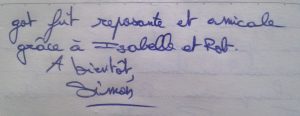 got fut reposante et amicale
grâce à Isabelle et Rob.
A bientôt,
Simon